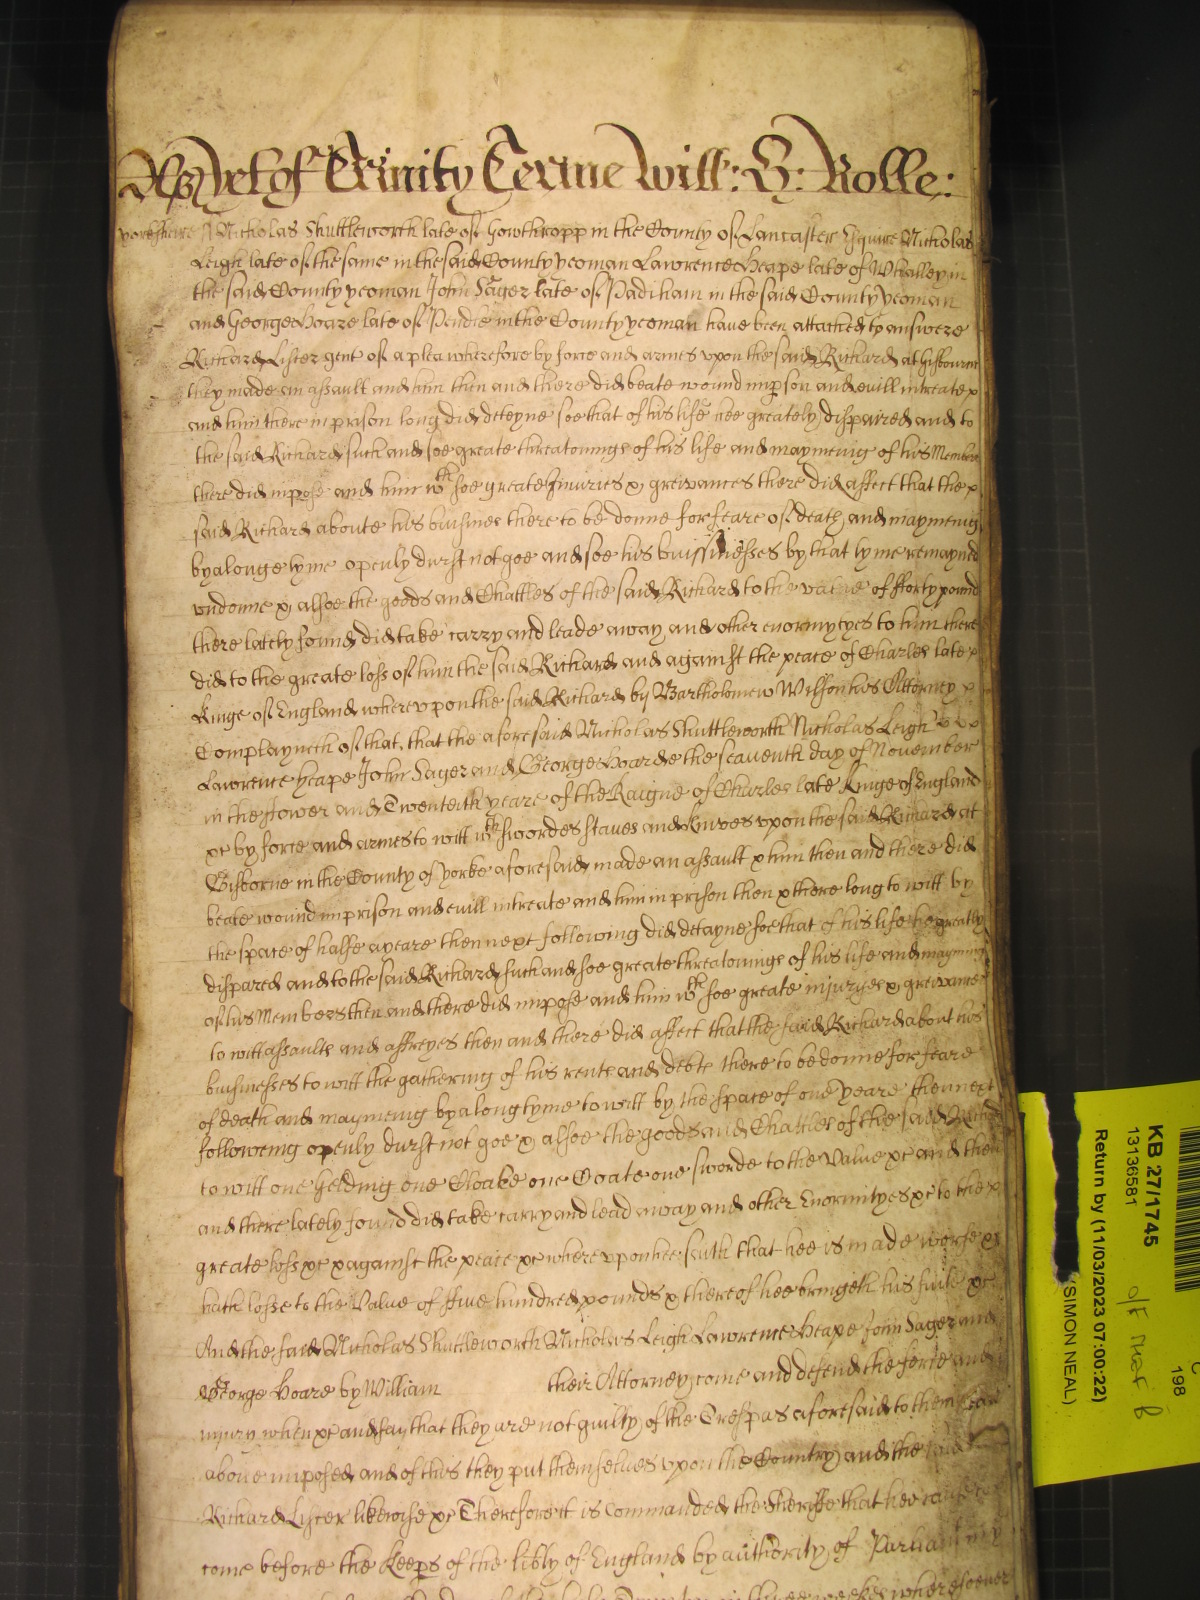 As yet of Trinity Terme Will: S: Rolle:
Yorkshire Nicholas Shuttleworth late of Howthropp in the County of Lancaster Esquire Nicholas
Leigh late of the same in the said County yeoman Lawrence Heape late of Whalley in
the said County yeoman John Sager late of Padiham in the said County yeoman
and George Hoare late of Pendle in the County yeoman have been attached to answere
Richard Lister gent of a plea wherefore by force and armes vpon the said Richard at Gisbourne
they made an assault and him then and there did beate wound imprson and evill intreate x
and him there in prison long did deteyne soe that of his life hee greately dispaired and to
the said Richard such and soe greate threatonings of his life and maymenig of his Members
there did impose and him wth soe greate Iniuries x greivances there did affect that the x
said Richard aboute his buisines there to be donne for feare of death and maymenig
by a longe tyme openly durst not goe and soe his buissinesses by that tyme remaynd
vndonne x alsoe the goods and Chattles of the said Richard to the value of fforty pound
there lately found did take carry and leade away and other enormytyes to him there
did to the greate loss of him the said Richard and against the peace of Charles late x
Kinge of England wherevpon the said Richard by Bartholomew Wilson his Attorney x
Complayneth of that, that the aforesaid Nicholas Shuttleworth Nicholas Leigh
Lawrence Heape John Sager and George Hoare the seaventh day of November
in the ffower and Twenteith yeare of the Raigne of Charles late Kinge of England
xc by force and armes to witt wth swordes staves and knives vpon the said Richard at
Gisborne in the County of Yorke aforesaid made an assault x him then and there did
beate wound imprison and evill intreate and him in prison then x there long to witt by
the space of halfe a yeare then next following did detayne soe that of his life he greatly
dispared and to the said Richard such and soe greate threatonings of his life and mayming
of his Members then and there did impose and him wth soe greate injuryes x greivances
to witt assaults and affreyes then and there did affect that the said Richard about his
buisinesses to witt the gathering of his rents and debts there to be donne for feare
of death and maymenig by a long tyme to witt by the space of one yeare then next
followeing openly durst not goe x alsoe the goods and Chattles of the said Richd
to witt one gelding one Cloake one Coate one sworde to the value xc and then
and there lately found did take carry and lead away and other Enormityes xc to the x
greate loss xc x against the peace xc where vpon hee saith that hee is made worse x
hath losse to the Value of ffive hundred pounds x thereof hee bringeth his suite xc
And the said Nicholas Shuttleworth Nicholas Leigh Lawrence Heape John Sager and
George Hoare by William their Attorney come and defend the force and
injury when xc and say that they are not guilty of the Trespas aforesaid to them
above imposed and of this they put themselves vpon the Country and the said
Richard Lister likewise xc Therefore it is Commanded the Sheriffe that hee cause
come before the Keeps of the libty of England by authority of Parliament
wheresoever
KB 27/1745
13136581
Return by (11/03/2023 07:00:22)
(SIMON NEAL)
198